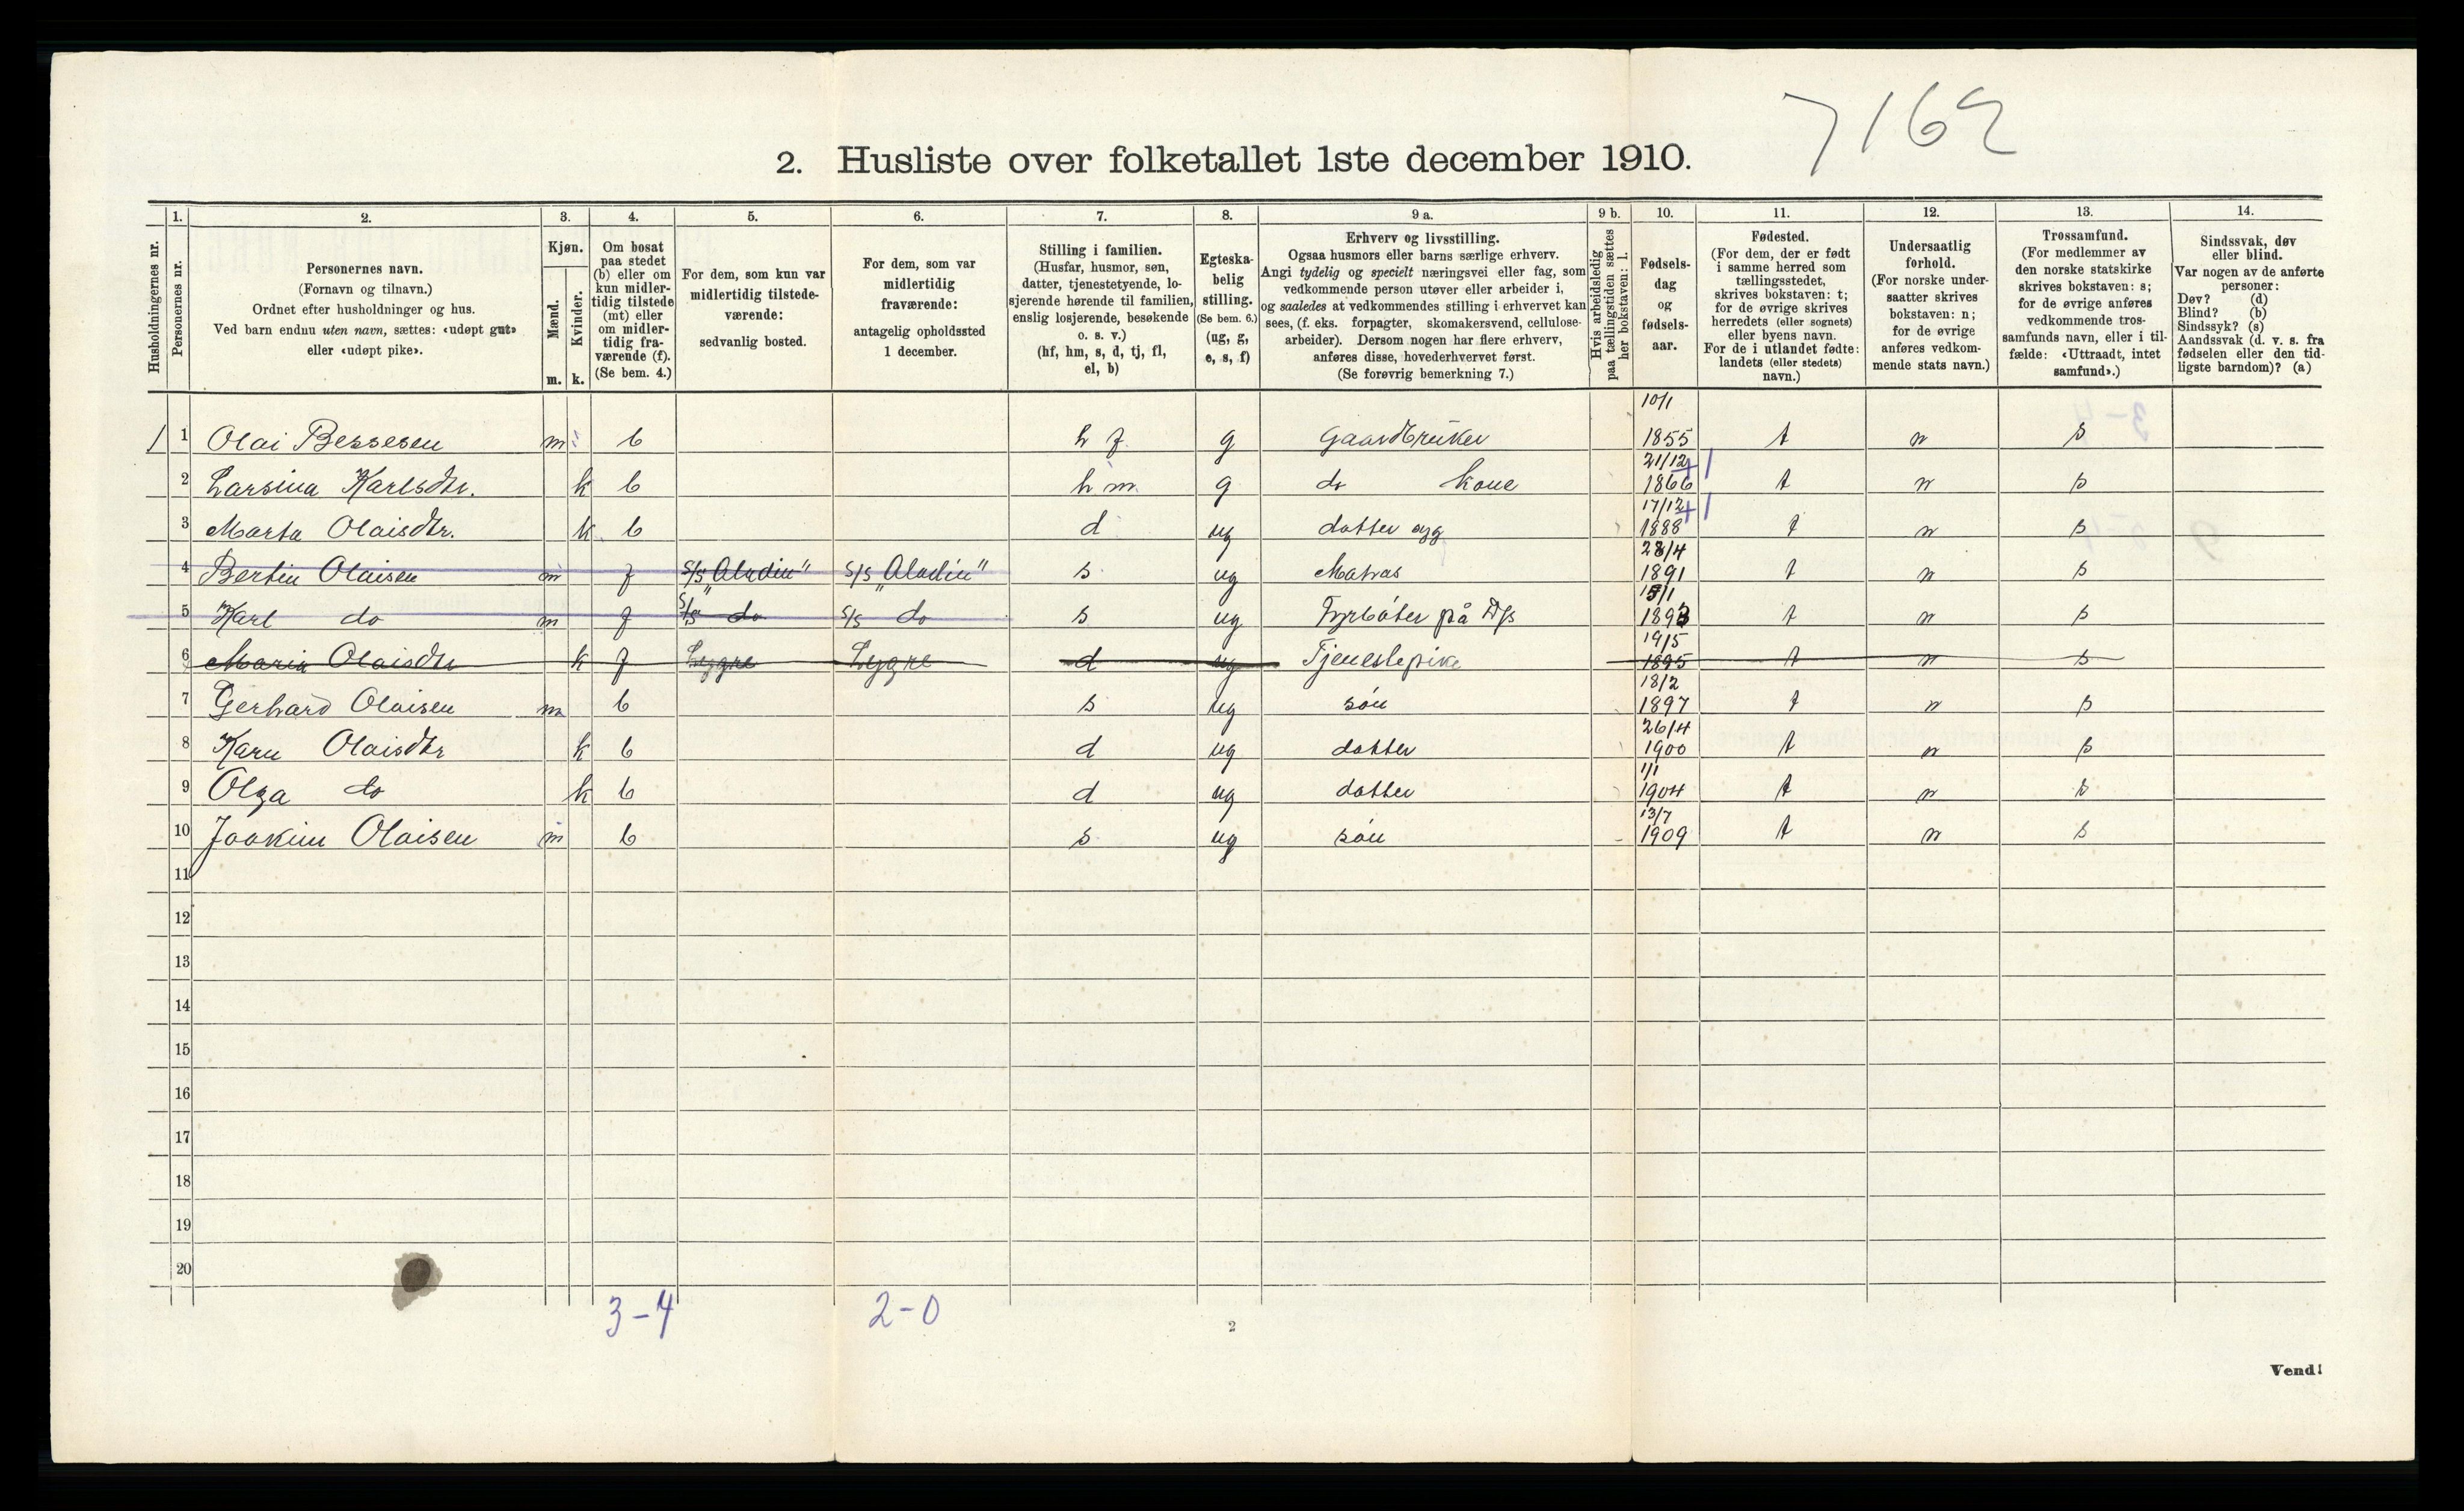 7162
2. Husliste over folketallet 1ste december 1910.
Husholdningernes nr.
1. Personernes nr.
2. Personernes navn.
(Fornavn og tilnavn.)
Ordnet efter husholdninger og hus.
Ved barn endnu uten navn, sættes: «udøpt gut»
eller «udøpt pike».
3. Kjøn.
Mænd. m.
Kvinder. k.
4. Om bosat
paa stedet
(b) eller om
kun midler-
tidig tilstede
(mt) eller
om midler-
tidig fra-
værende (f).
(Se bem. 4.)
5. For dem, som kun var
midlertidig tilstede-
værende:
sedvanlig bosted.
6. For dem, som var
midlertidig
fraværende:
antagelig opholdssted
1 december.
7. Stilling i familien.
(Husfar, husmor, søn,
datter, tjenestetyende, lo-
sjerende hørende til familien,
enslig losjerende, besøkende
o. s. v.)
(hf, hm, s, d, tj, fl,
el, b)
8. Egteska-
belig
stilling.
(Se bem. 6.)
(ug, g,
e, s, f)
9 a. Erhverv og livsstilling.
Ogsaa husmors eller barns særlige erhverv.
Angi tydelig og specielt næringsvei eller fag, som
vedkommende person utøver eller arbeider i,
og saaledes at vedkommendes stilling i erhvervet kan
sees, (f. eks. forpagter, skomakersvend, cellulose-
arbeider). Dersom nogen har flere erhverv,
anføres disse, hovederhvervet først.
(Se forøvrig bemerkning 7.)
9 b. Hvis arbeidsledig
paa tællingstiden sættes
her bokstaven: l.
10. Fødsels-
dag
og
fødsels-
aar.
11. Fødested.
(For dem, der er født
i samme herred som
tællingsstedet,
skrives bokstaven: t;
for de øvrige skrives
herredets (eller sognets)
eller byens navn.
For de i utlandet fødte:
landets (eller stedets)
navn.)
12. Undersaatlig
forhold.
(For norske under-
saatter skrives
bokstaven: n;
for de øvrige
anføres vedkom-
mende stats navn.)
13. Trossamfund.
(For medlemmer av
den norske statskirke
skrives bokstaven: s;
for de øvrige anføres
vedkommende tros-
samfunds navn, eller i til-
fælde: «Uttraadt, intet
samfund».)
14. Sindssvak, døv
eller blind.
Var nogen av de anførte
personer:
Døv? (d)
Blind? (b)
Sindssyk? (s)
Aandssvak (d. v. s. fra
fødselen eller den tid-
ligste barndom)? (a)
1 1 Olai Bessesen m b h f g Gaardbruker 10/1 1855 t n s
2 Larsina Karlsdtr. k b h m g do kone 21/12 1866 t n s
3 Marta Olaisdtr. k b d ug datter 17/12 1888 t n s
4 Bertin Olaisen m f S/S "Aladin" S/S "Aladin" s ug Matros 28/4 1891 t n s
5 Karl do m f S/S do S/S do s ug Fyrbøter på D/S 15/1 1893 t n s
6 Maria Olaisdtr k f Lygre Lygre d ug Tjenestepike 19/5 1895 t n s
7 Gerhard Olaisen m b s ug søn 18/2 1897 t n s
8 Karn Olaisdtr k b d ug datter 26/4 1900 t n s
9 Olga do k b d ug datter 1/1 1904 t n s
10 Joakim Olaisen m b s ug søn 13/7 1909 t n s
11
12
13
14
15
16
17
18
19
20
3-4 2-0
2
Vend!